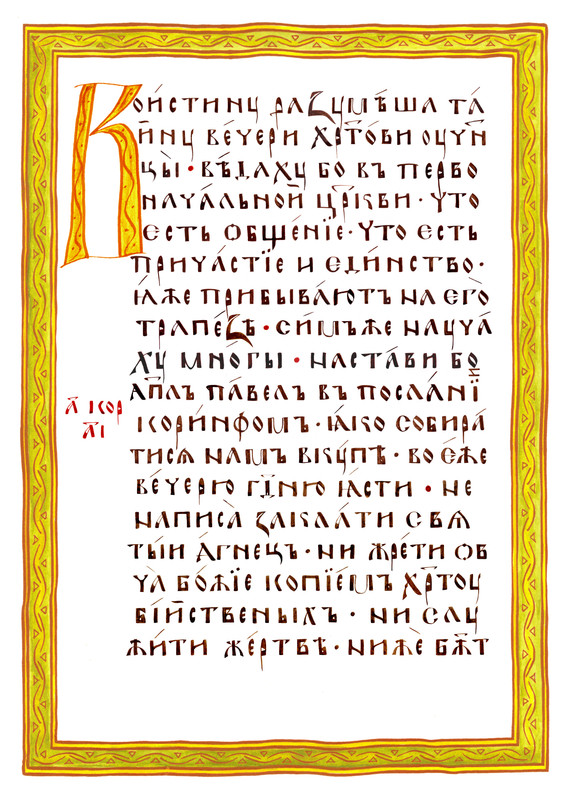 Вои́стинꙋ раꙁꙋмѣ́ша та́
и҆́нꙋ вече́ри хрⷭ҇то́ви оучн҃
цы̀ · вѣ́дахꙋ бо въ перво
нача́льной цр҃кви · что
есть ѻбще́нїе · что есть
прича́стїе и еди́нство ·
ꙗ҆́же прибыва́ютъ на его̀
трапе́ꙁѣ · си́мъже наꙋча́
хꙋ мно́гы · наста́ви бо
ап҃лъ па́вел въ посла́нїи
кори́нѳом · ꙗ҆́ко собира́
тисѧ нам вкꙋ́пѣ · во є҆́же
вече́рю гд҇ню ꙗ҆́сти · не
написа̀ ꙁакла́ти свѧ
ты́и а҆́гнецъ · ни жре́ти ѻв
ча̀ бо́жїе копїе́м хрⷭ҇тоꙋ
бі́йственых · ни слꙋ
жи́ти же́ртвѣ · нижѐ бж҃т
а҃ кор
а҃і